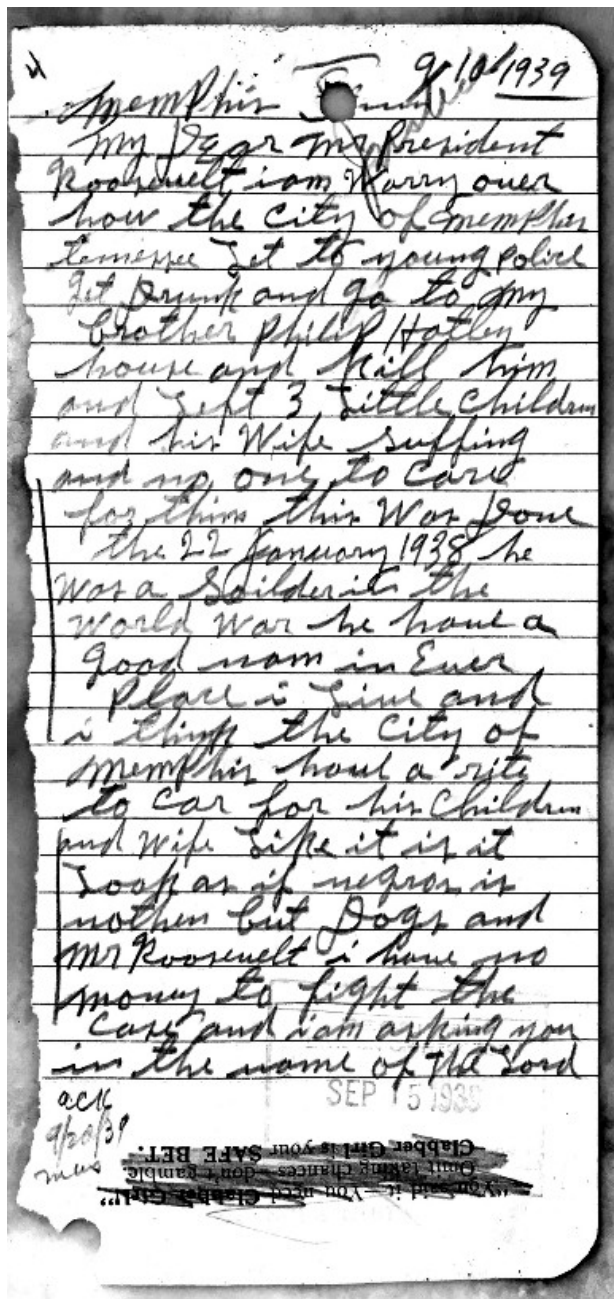 9/10/1939
Memphis Tenn
My Dear Mr President
Roosevelt i am Worry over
how the City of Memphis
tennessee Let to young police
get Drunk and go to my
brother Philip Hatley
house and Kill him
and Left 3 Little Children
and his Wife suffing
and no one to care
for thim this Was Done
the 22 January 1938 he
Was a Soilder in the
World War he have a
good nam in Ever
Place i Live and
i think the City of
Memphis have a rite
to Car for his Children
and Wife Like it is it
Look as if negros is
nothen but Dogs and
Mr Roosevelt i have no
money to fight the
Case and i am asking you
in the name of the Lord
SEP 15 1939
ack
9/20/39
"You said it—You need Clabber Girl"
Omit taking chances—don't gamble.
Clabber Girl is your SAFE BET.